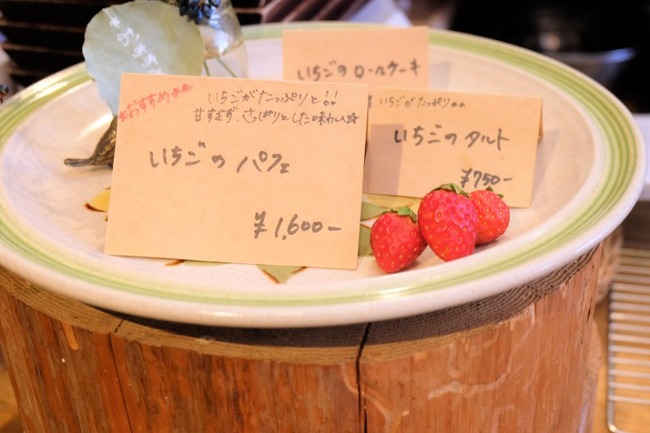 *おすすめ*
いちごのロールケーキ
*おすすめ**
いちごがたっぷりと!!
甘すぎず、さっぱりとした味わい☆
いちごのパフェ
¥1,600-
いちごがたっぷり**
いちごのタルト
¥750-